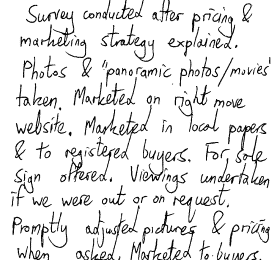 Survey conducted after pricing &
marketing strategy explained.
Photos & "panoramic photos/movies"
taken. Marketed on right move
website. Marketed in local papers
& to registered buyers. For sale
sign offered. Viewings undertaken
if we were out or on request.
Promptly adjusted pictures & pricing
when asked. Marketed to buyers.